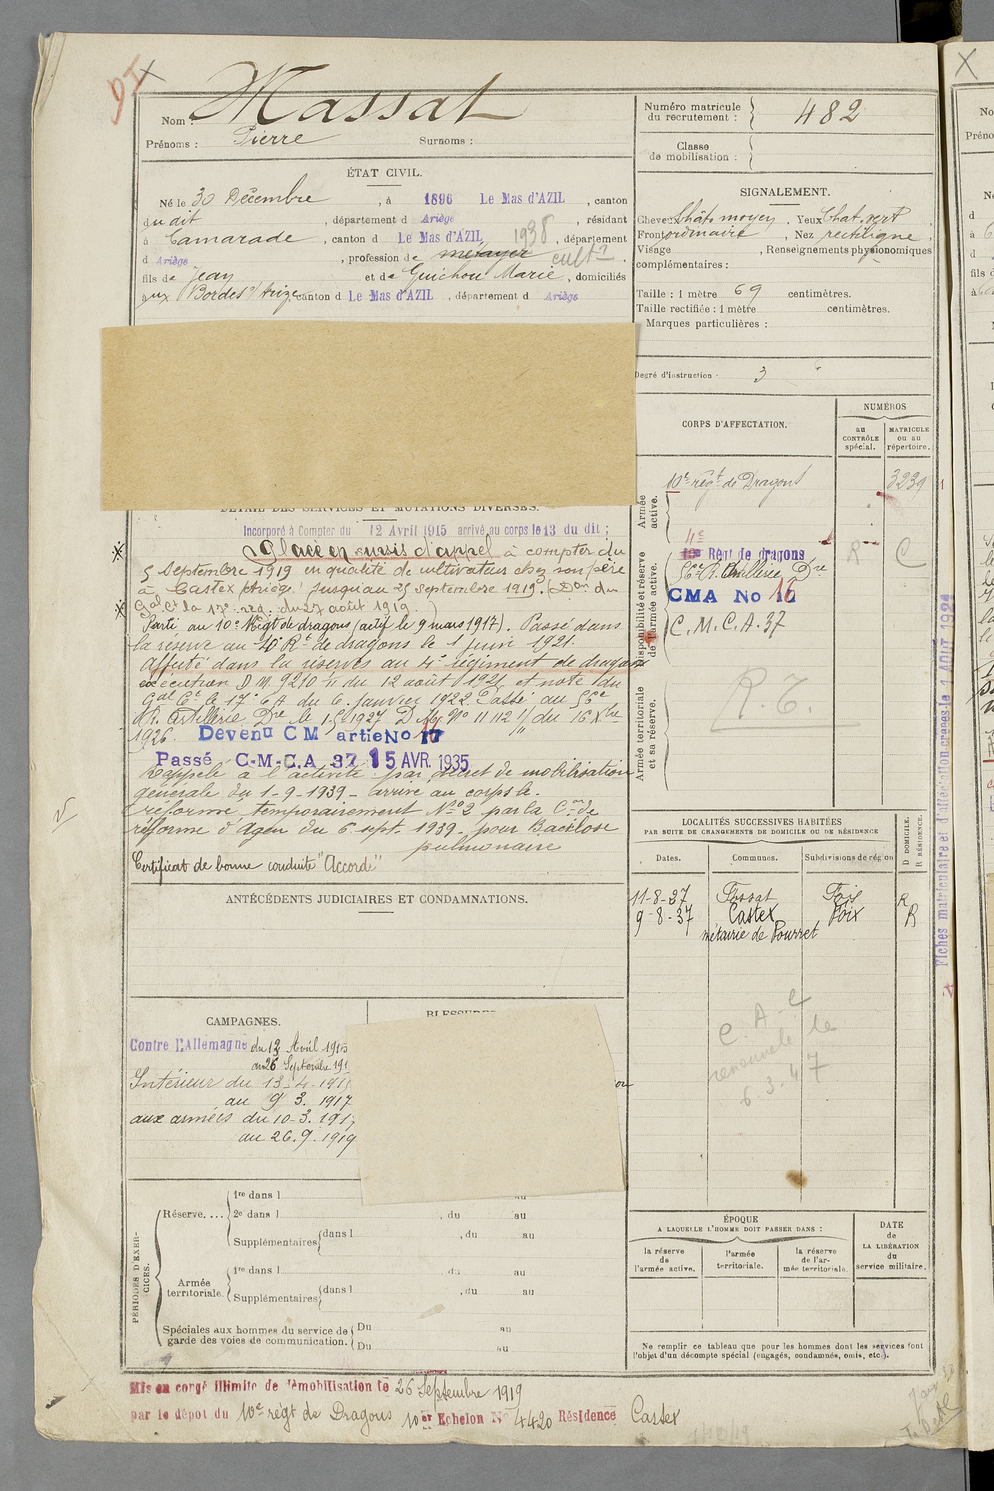 DI
Nom : Massat
Prénoms : Pierre Surnoms :
Numéro matricule du recrutement : 482
Classe de mobilisation :
ÉTAT CIVIL.
Né le 30 Décembre , à 1896 Le Mas d'AZIL , canton
dudit , département d Ariège , résidant
à Camarade , canton d Le Mas d'AZIL 1938 , département
d Ariège , profession de métayer cultr .
fils de Jean et de Guichou Marie , domiciliés
aux Bordes s/ Arize canton d Le Mas d'AZIL , département d Ariège
SIGNALEMENT.
Cheveux chât. moyen , Yeux Chat. vert
Front ordinaire , Nez rectiligne ,
Visage , Renseignements physionomiques
complémentaires :
Taille : 1 mètre 69 centimètres.
Taille rectifiée : 1 mètre centimètres.
Marques particulières :
Degré d'instruction . 3
DÉTAIL DES SERVICES ET MUTATIONS DIVERSES.
Incorporé à Compter du 12 Avril 1915 arrivé au corps le 13 du dit ;
Placé en sursis d'appel à compter du
5 Septembre 1919 en qualité de cultivateur chez son père
à Castex Ariège jusqu'au 25 septembre 1919. (Don du
Gal Ct la 17e rég. du 27 août 1919.
Parti au 10e Régt de dragons (actif le 9 mars 1917). Passé dans
la réserve au 10e Rt de dragons le 1 juin 1921.
Affecté dans la réserve au 4e régiment de dragons
exécution D M. 9210 1/11 du 12 août 1921 et note du
Gal Ct le 17e CA du 6 Janvier 1922. Passé au 56e
R. Artillerie Dre le 1-5 1927 D M No 11112 1/11 du 16 Xbre
1926. Devenu C M artie No 17
Passé C-M-C.A 37 15 AVR. 1935
Rappelé à l'activité par décret de mobilisation
générale du 1-9-1939 - arrivé au corps le.
réformé temporairement No 2 par la Con de
réforme d'Agen du 6 sept. 1939 - pour Bacillose
pulmonaire
Certificat de bonne conduite "Accordé"
CORPS D'AFFECTATION.
NUMÉROS
au CONTRÔLE spécial.
MATRICULE ou au répertoire.
Armée active.
10e régt de Dragons 3239
Disponibilité et réserve de l'armée active.
4e
10e Régt de dragons R C
56e R. Artillerie Dre
CMA No 16
C.M.C.A. 37
Armée territoriale et sa réserve.
R.T.
LOCALITÉS SUCCESSIVES HABITÉES
PAR SUITE DE CHANGEMENTS DE DOMICILE OU DE RÉSIDENCE
Dates. Communes. Subdivisions de région
D DOMICILE. R RÉSIDENCE.
11-8-27 Fossat Foix R
9-8-37 Castex Foix R
métairie de Pourret
C A C
renouvelé le
6.3.47
ANTÉCÉDENTS JUDICIAIRES ET CONDAMNATIONS.
CAMPAGNES.
BLESSURES
Contre l'Allemagne du 12 Avril 1915
au 26 Septembre 191
Intérieur du 13-4-191
au 9 3. 1917
aux armées du 10-3. 191
au 26.9. 1919
PÉRIODES D'EXERCICES.
Réserve....
1re dans l au
2e dans l , du au
Supplémentaires dans l , du au
Armée territoriale.
1re dans l , du au
Supplémentaires dans l , du au
Spéciales aux hommes du service de garde des voies de communication.
Du au
Du au
ÉPOQUE
A LAQUELLE L'HOMME DOIT PASSER DANS :
la réserve de l'armée active.
l'armée territoriale.
la réserve de l'armée territoriale.
DATE de LA LIBÉRATION du service militaire.
Ne remplir ce tableau que pour les hommes dont les services font
l'objet d'un décompte spécial (engagés, condamnés, omis, etc.).
Mis en congé illimité de démobilisation le 26 Septembre 1919
par le dépôt du 10e régt de Dragons 10er Echelon No 4420 Résidence Castex
Fiches matriculaire et d'affectation créées le 1 AOUT 1924